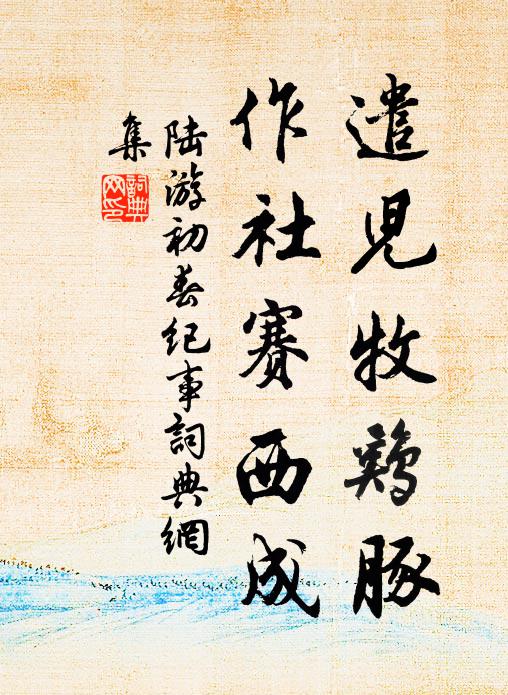 遣兒牧鷄豚
作社賽西成
陸游初春纪事詞典網
集
詞典網印